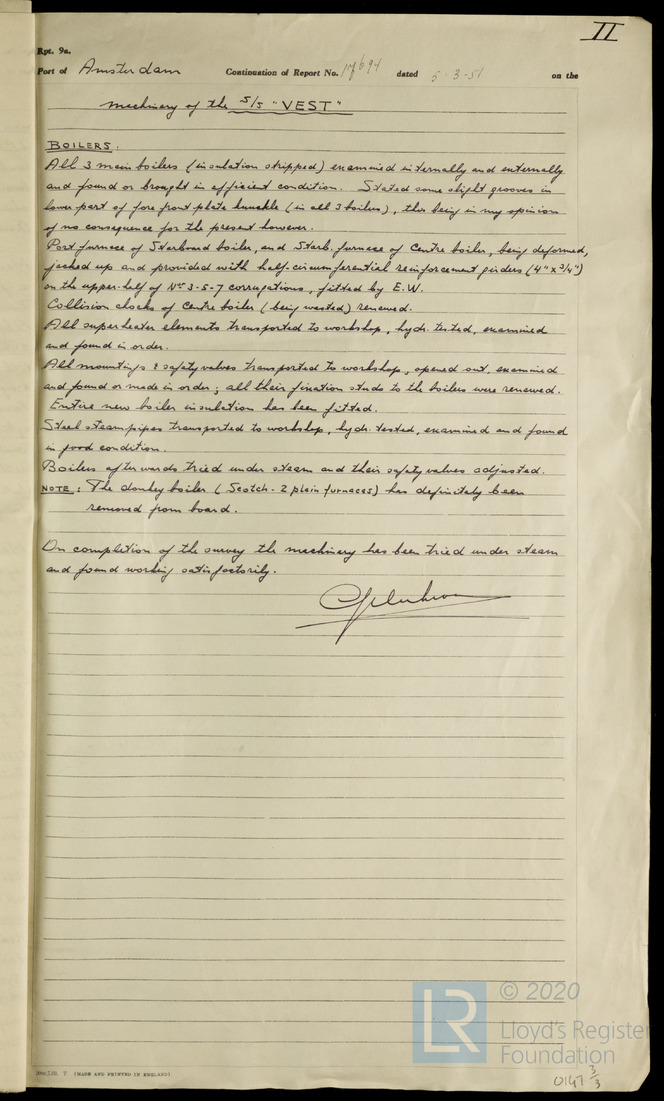 II
Rpt. 9a.
Port of Amsterdam Continuation of Report No. 17694 dated 5-3-51 on the
machinery of the S/S "VEST"
BOILERS.
All 3 main boilers (insulation stripped) examined internally and externally
and found or brought in efficient condition. Stated some slight grooves in
lower part of fore front plate knuckle (in all 3 boilers), this being in my opinion
of no consequence for the present however.
Port furnace of Starboard boiler, and Starb. furnace of Centre boiler, being deformed,
jacked up and provided with half-circumferential reinforcement girders (4" x 3/4")
on the upper-half of Nos 3-5-7 corrugations, fitted by E.W.
Collision chocks of Centre boiler (being wasted) renewed.
All superheater elements transported to workshop, hydr. tested, examined
and found in order.
All mountings & safety valves transported to workshop, opened out, examined
and found or made in order; all their fixation studs to the boilers were renewed.
Entire new boiler insulation has been fitted.
Steel steampipes transported to workshop, hydr. tested, examined and found
in good condition.
Boilers afterwards tried under steam and their safety valves adjusted.
NOTE: The donkey boiler (Scotch - 2 plain furnaces) has definitely been
removed from board.
On completion of the survey the machinery has been tried under steam
and found working satisfactorily.
(MADE AND PRINTED IN ENGLAND)
LR
© 2020
Lloyd's Register
Foundation
0147 3/3